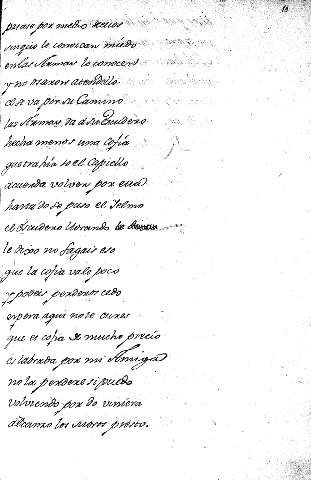 pasase por medio dellos
sin que le conoscan miedo
en las Armas le conocen
y no osaron atendello
el se va por su Camino
las Armas da a su Escudero
hecha menos una cofia
que trahia so el Capiello
acuerda volver por ella
hasta do se puso el Yelmo
el Escudero llorando
le dixo no fagais eso
que la cofia vale poco
y podeis perderos cedo
espera aqui no te cures
que es cofia de mucho precio
es labrada por mi Amiga
no la perdere si puedo
volviendo por do viniera
alcanzo los moros presto.